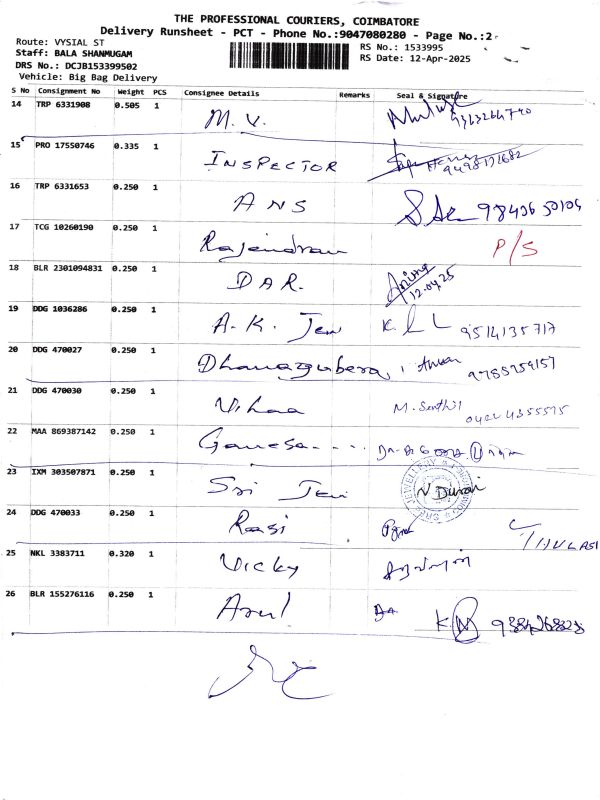 THE PROFESSIONAL COURIERS, COIMBATORE
Delivery Runsheet - PCT - Phone No.:9047080280 - Page No.:2
Route: VYSIAL ST
Staff: BALA SHANMUGAM
DRS No.: DCJB153399502
Vehicle: Big Bag Delivery
RS No.: 1533995
RS Date: 12-Apr-2025
S No Consignment No Weight PCS Consignee Details Remarks Seal & Signature
14 TRP 6331908 0.505 1 M. V.
15 PRO 17550746 0.335 1 INSPECTOR 9498171682
16 TRP 6331653 0.250 1 ANS
17 TCG 10260190 0.250 1 Rajendran P/S
18 BLR 2301094831 0.250 1 DAR. 12.04.25
19 DDG 1036286 0.250 1 A.K. Jew 9514135717
20 DDG 470027 0.250 1
21 DDG 470030 0.250 1 Vihaa M. Senthil
22 MAA 869387142 0.250 1 Ganesa....
23 IXM 303507871 0.250 1 Sri Jew N Durai
24 DDG 470033 0.250 1 Rasi THULASI
25 NKL 3383711 0.320 1 Vicky
26 BLR 155276116 0.250 1 Arul